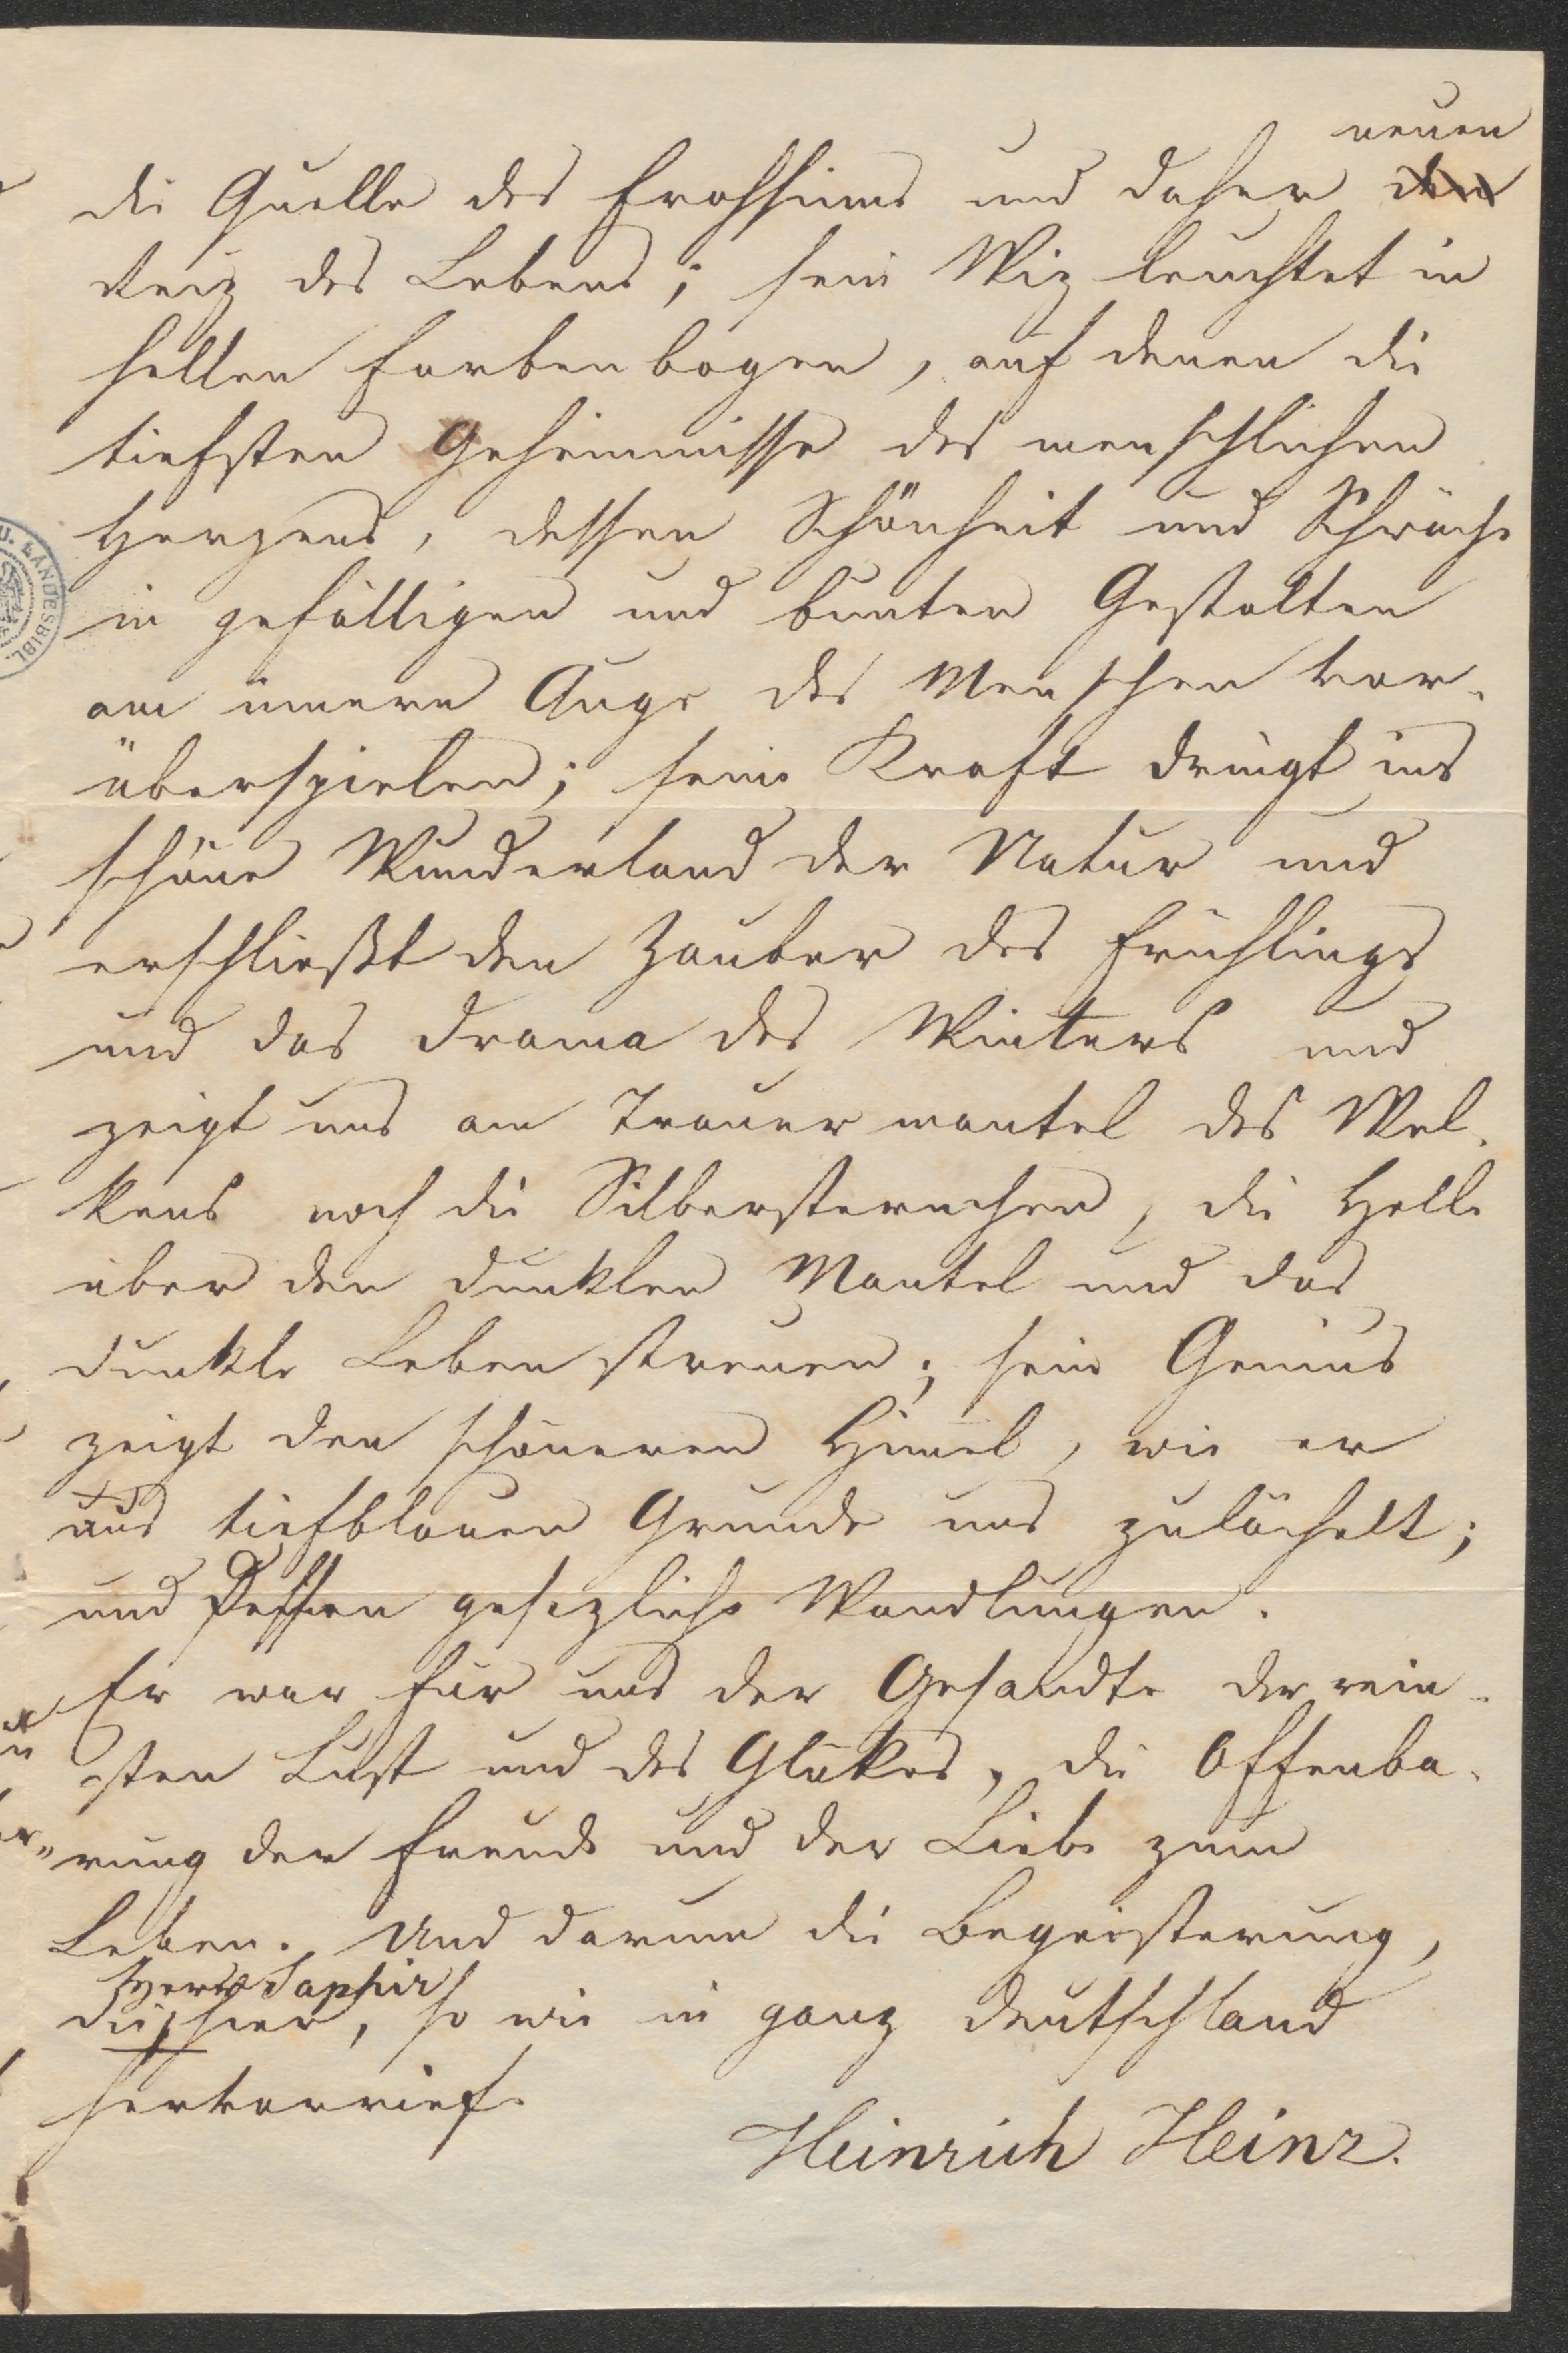 neuen
die Quelle des Frohsinns und daher den
Reiz des Lebens; sein Wiz leuchtet in
hellen Farbenbogen, auf denen die
tiefsten Geheimnisse des menschlichen
Herzens, dessen Schönheit und Schwäche
in gefälligen und bunten Gestalten
am innern Auge des Menschen vor-
überspielen; seine Kraft dringt ins
schöne Wunderland der Natur und
erschließt den Zauber des Frühlings
und das Drama des Winters und
zeigt uns am Trauermantel des Wel-
kens noch die Silbersternchen, die Helle
über den dunklen Mantel und das
dunkle Leben streuen; sein Genius
zeigt den schöneren Himel, wie er
aus tiefblauen Grunde uns zulächelt;
und dessen gesezliche Wandlungen.
Er war für uns der Gesandte der rein-
sten Lust und des Glükes, die Offenba-
rung der Freude und der Liebe zum
Leben. Und darum die Begeisterung,
Herr Saphir
die hier, so wie in ganz Deutschland
hervorrief.
Heinrich Heinz.
U. LANDESBIBL.